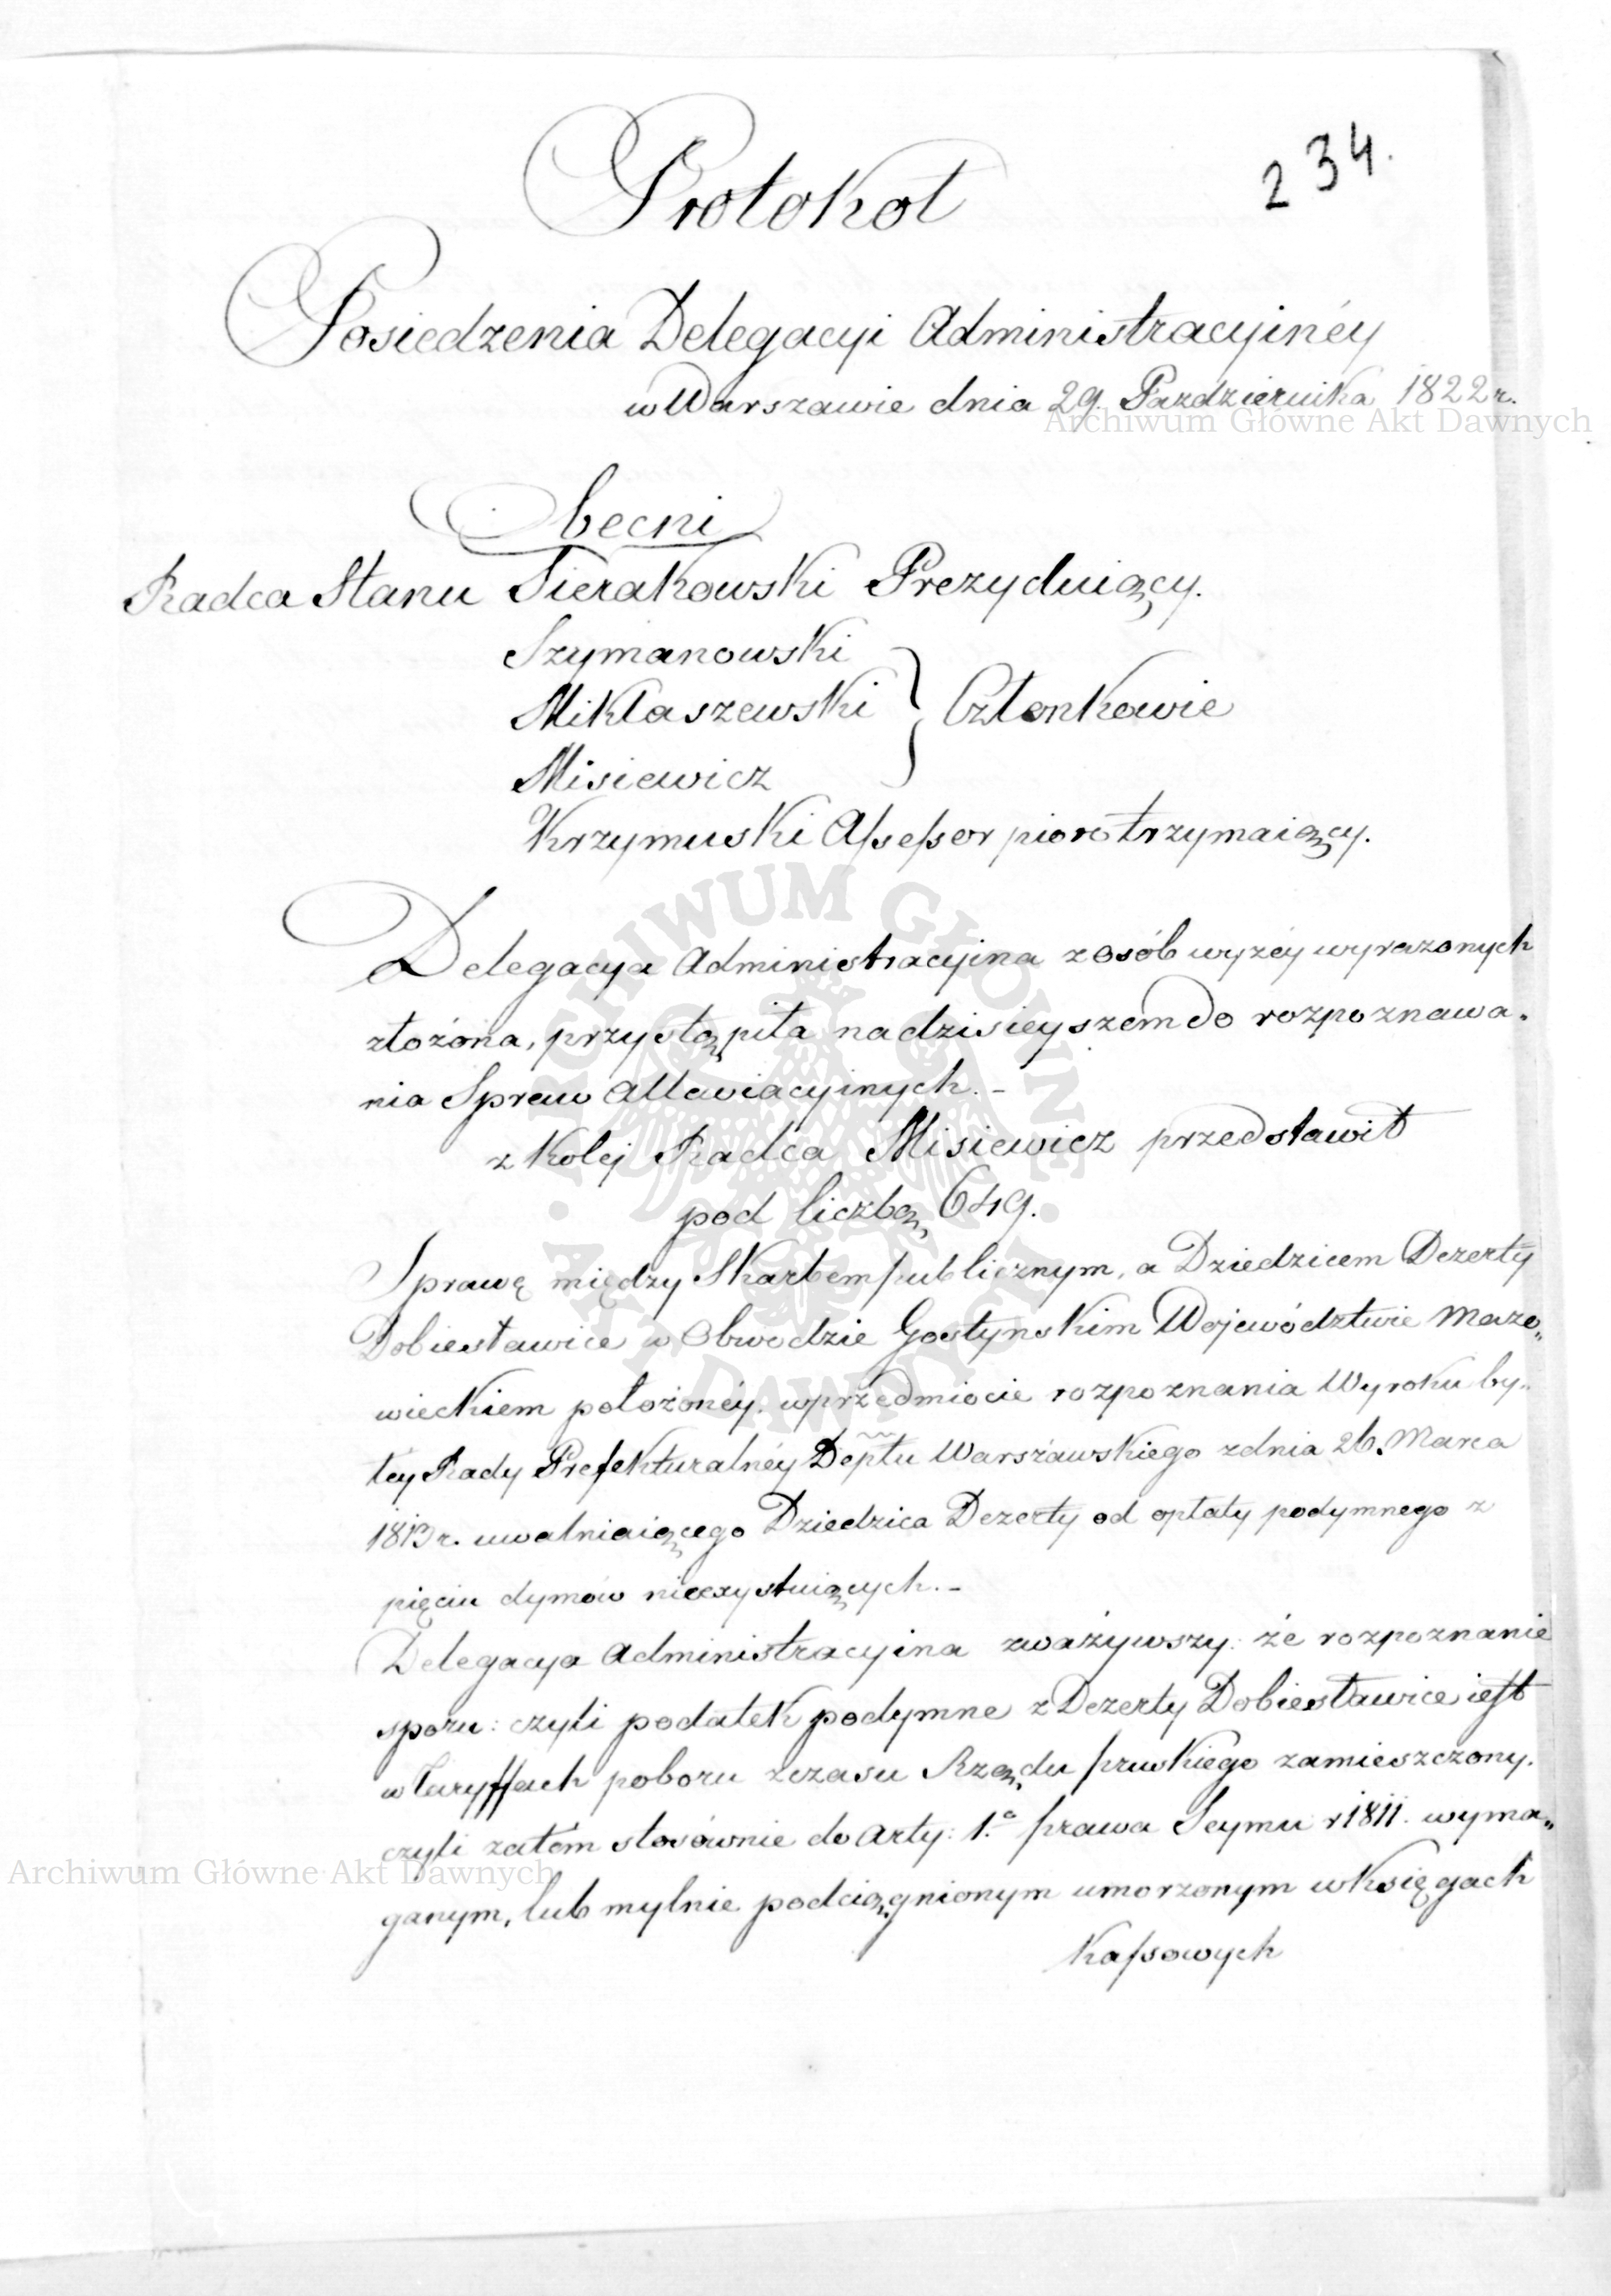 234.
Protokół
Posiedzenia Delegacyi Administracyinéy
w Warszawie dnia 29. Pazdziernika 1822 r.
Archiwum Główne Akt Dawnych
Obecni
Radca Stanu Sierakowski Prezyduiący.
Szymanowski
Mikłaszewski } Członkowie
Misiewicz
Krzymuski Assessor pioro trzymaiący.
Delegacya Administracyina z osób wyżéy wyrażonych
złożona, przystąpiła na dzisieyszem do rozpoznawa-
nia Spraw Allewiacyinych.-
z Kolej Radca Misiewicz przedstawił
pod liczbą 649.
Sprawę między Skarbem publicznym, a Dziedzicem Dezerty
Dobiesławice w Obwodzie Gostynskim Województwie Mazo-
wieckiem położonéy. w przedmiocie rozpoznania Wyroku by-
łey Rady Prefekturalnéy Deptu Warszawskiego z dnia 26. Marca
1813 r. uwalniaiącego Dziedzica Dezerty od opłaty podymnego z
pięciu dymów nieexystuiących.-
Delegacya Administracyina zważywszy: że rozpoznanie
sporu: czyli podatek podymne z Dezerty Dobiesławice iest
w Taryffach poboru z czasu Rządu pruskiego zamieszczony.
czyli zatem stosównie do Arty: 1.º prawa Seymu r 1811. wyma-
Archiwum Główne Akt Dawnych
ganym, lub mylnie podciągnionym umorzonym w Księgach
Kassowych
ARCHIWUM GŁÓWNE · AKT DAWNYCH ·